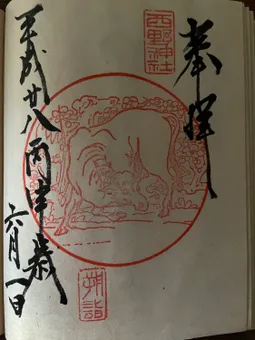 奉拝
西野神社
平成廿八丙申歳
六月一日
朔詣